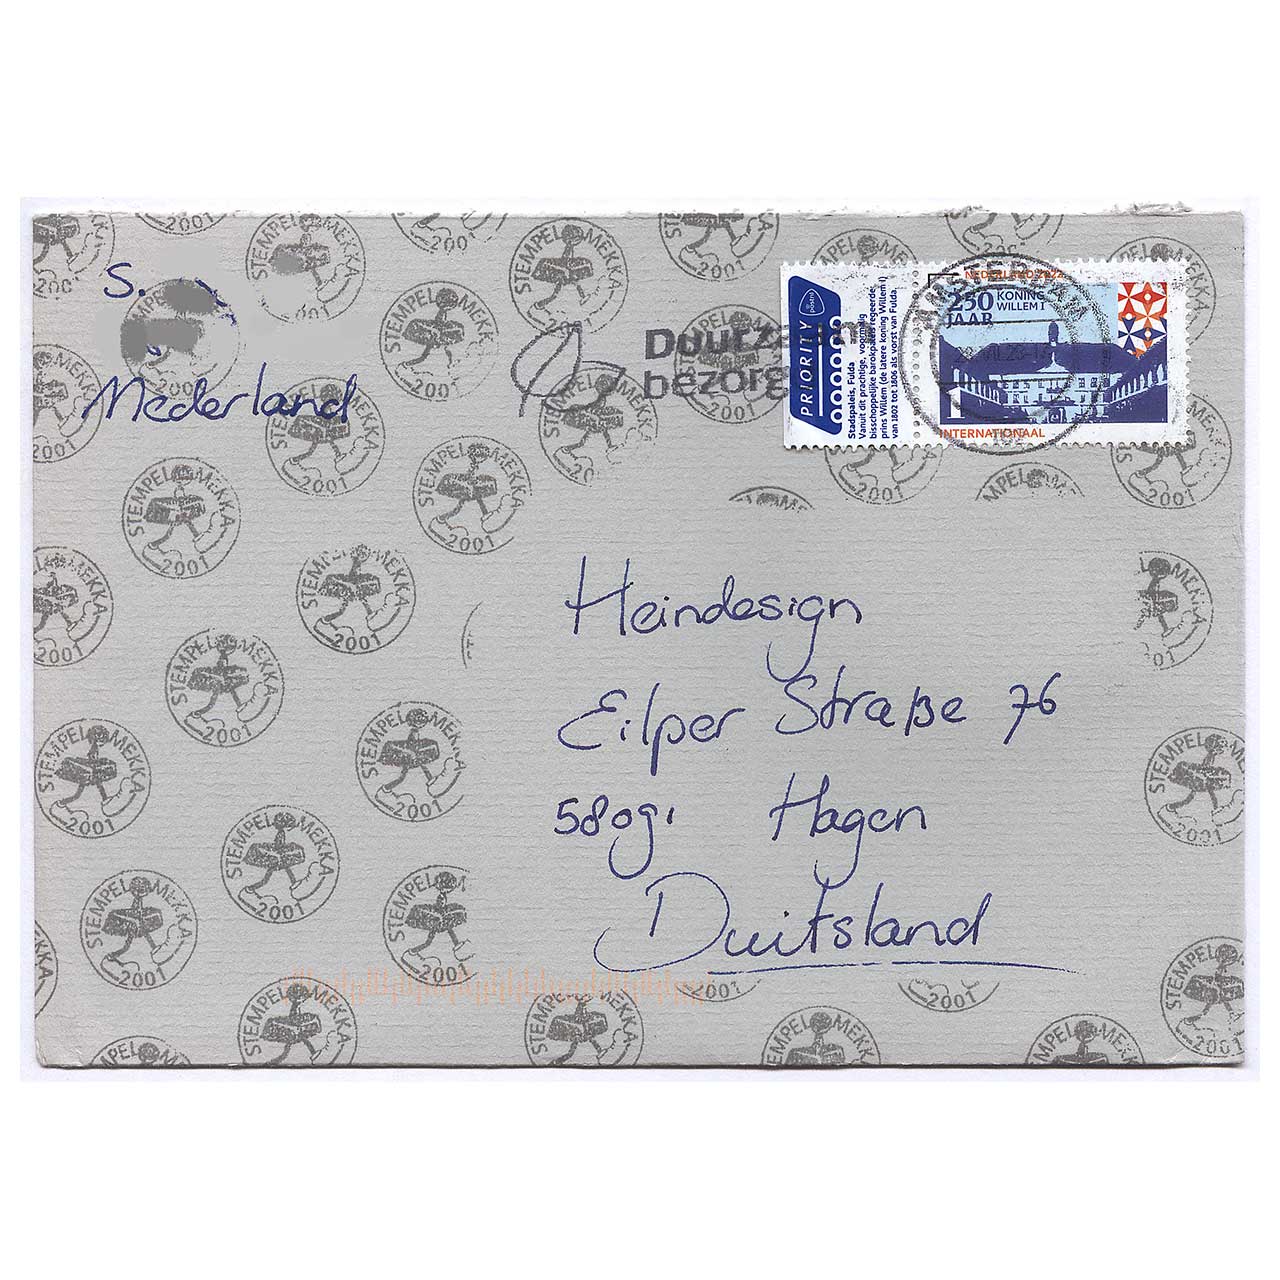 S.
Nederland
Duurzaam
bezorg
PRIORITY
Stadspaleis, Fulda
Vanuit dit prachtige, voormalig
bisschoppelijke barokpaleis regeerde
prins Willem (de latere koning Willem I)
van 1802 tot 1806 als vorst van Fulda.
NEDERLAND 2022
250 KONING
JAAR WILLEM I
1
INTERNATIONAAL
AMSTERDAM
Heindesign
Eilper Straße 76
58091 Hagen
Duitsland
STEMPEL MEKKA
2001